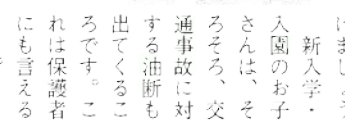 けましょう
新入学・
入園のお子
さんは、そ
ろそろ、交
通事故に対
する油断も
出てくるこ
ろです。こ
れは保護者
にも言える